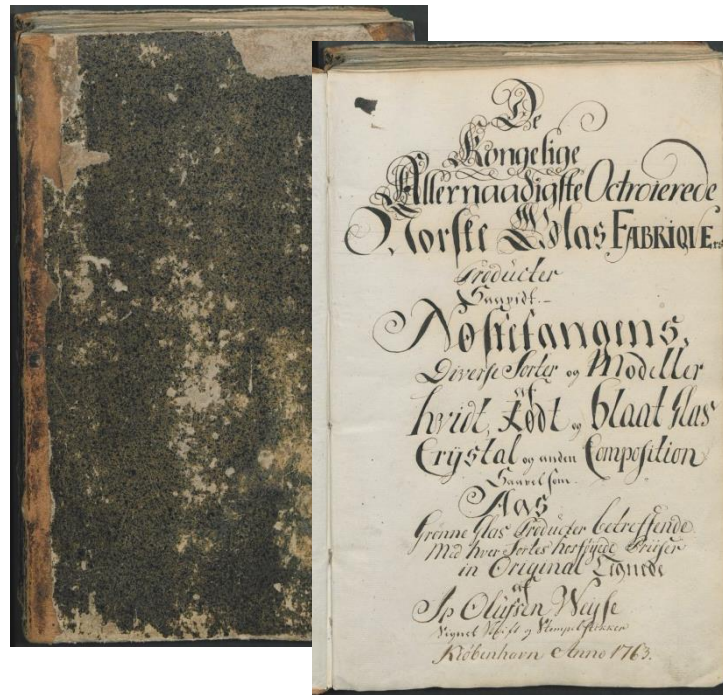 De
Kongelige
Allernaadigste Octroierede
Norske Glas FABRIQUErs
Producter
Saavidt.-
Nøstetangens,
Diverse Sorter og Modeller
af
hvidt, Rødt og blaat Glas
Crÿstal og anden Composition
Saavelsom.
Aas
Grønne Glas Producter betreffende
Med hver Sortes hosføyede Priiser
in Original Tegnede
af
Ip Olüfsen Weÿse
Signet og Stempelstikker
Kiøbenhavn Anno 1763.